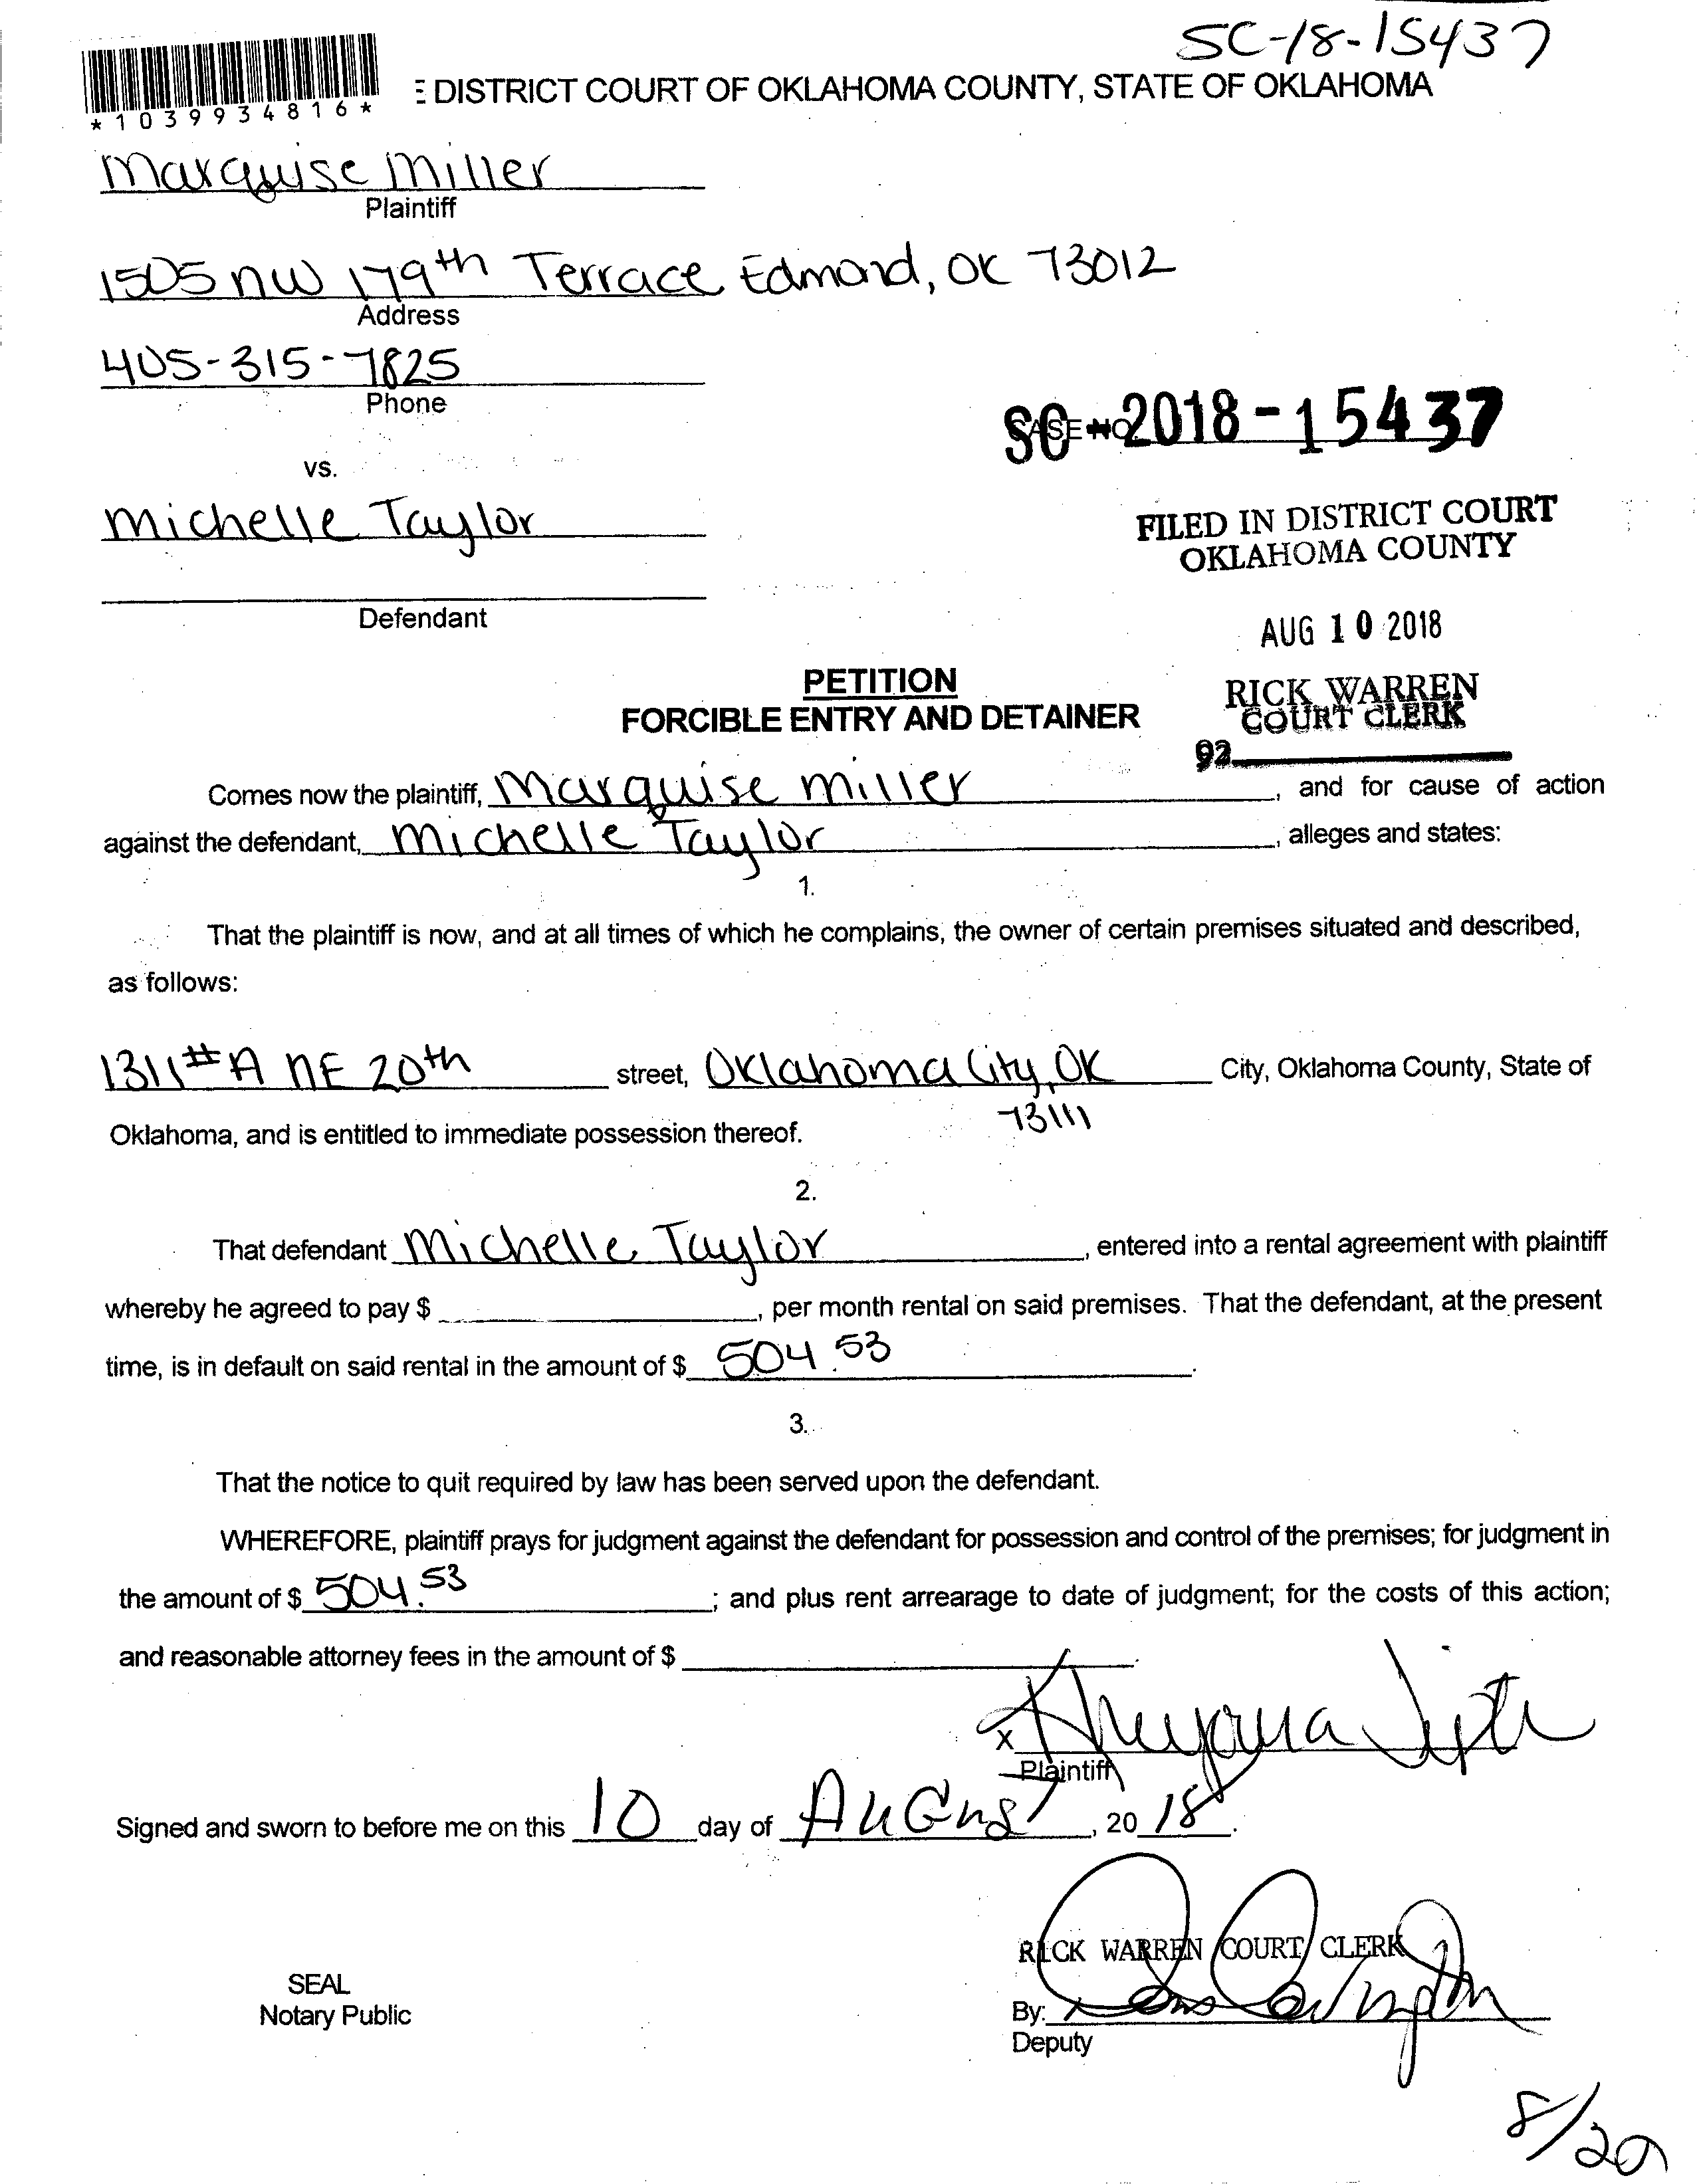 SC-18-15437
*1039934816*
E DISTRICT COURT OF OKLAHOMA COUNTY, STATE OF OKLAHOMA
Marquise Miller
Plaintiff
1505 NW 179th Terrace Edmond, OK 73012
Address
405-315-7825
Phone
SC-2018-15437
CASE NO.
vs.
Michelle Taylor
FILED IN DISTRICT COURT
OKLAHOMA COUNTY
Defendant
AUG 10 2018
PETITION
FORCIBLE ENTRY AND DETAINER
RICK WARREN
COURT CLERK
92
Comes now the plaintiff, Marquise Miller, and for cause of action
against the defendant, Michelle Taylor, alleges and states:
1.
That the plaintiff is now, and at all times of which he complains, the owner of certain premises situated and described,
as follows:
1311 #A NE 20th street, Oklahoma City, OK City, Oklahoma County, State of
73111
Oklahoma, and is entitled to immediate possession thereof.
2.
That defendant Michelle Taylor, entered into a rental agreement with plaintiff
whereby he agreed to pay $ , per month rental on said premises. That the defendant, at the present
time, is in default on said rental in the amount of $ 504.53.
3.
That the notice to quit required by law has been served upon the defendant.
WHEREFORE, plaintiff prays for judgment against the defendant for possession and control of the premises; for judgment in
the amount of $ 504.53; and plus rent arrearage to date of judgment; for the costs of this action;
and reasonable attorney fees in the amount of $ .
X
Plaintiff
Signed and sworn to before me on this 10 day of August, 2018.
RICK WARREN COURT CLERK
SEAL
Notary Public
By:
Deputy
8/20